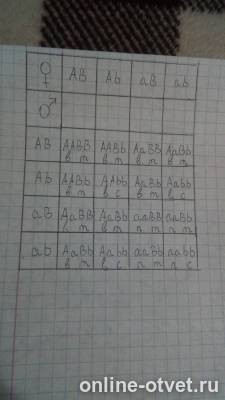 ♀ AB Ab aB ab
♂
AB AABB AABb AaBB AaBb
в т в т в т в т
Ab AABb AAbb AaBb Aabb
в т в с в т в с
aB AaBB AaBb aaBB aaBb
в т в т п т п т
ab AaBb Aabb aaBb aabb
в т в с п т п с
online-otvet.ru